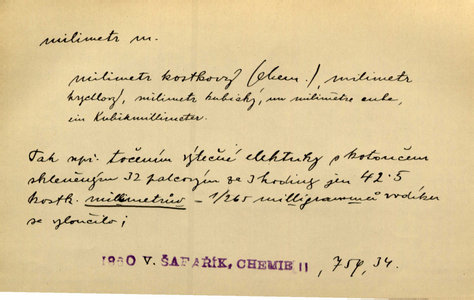 milimetr m.
milimetr kostkový (chem.), milimetr
krychlový, milimetr kubický, un milimètre cube,
ein Kubikmillimeter.
Tak např. točením výtečné elektriky s kotoučem
skleněným 32 palcovým za 3 hodiny jen 42·5
kostk. milimetrův – 1/265 milligrammů vodíku
se vyloučilo;
1860 V. ŠAFAŘÍK, CHEMIE II, 759, 34.